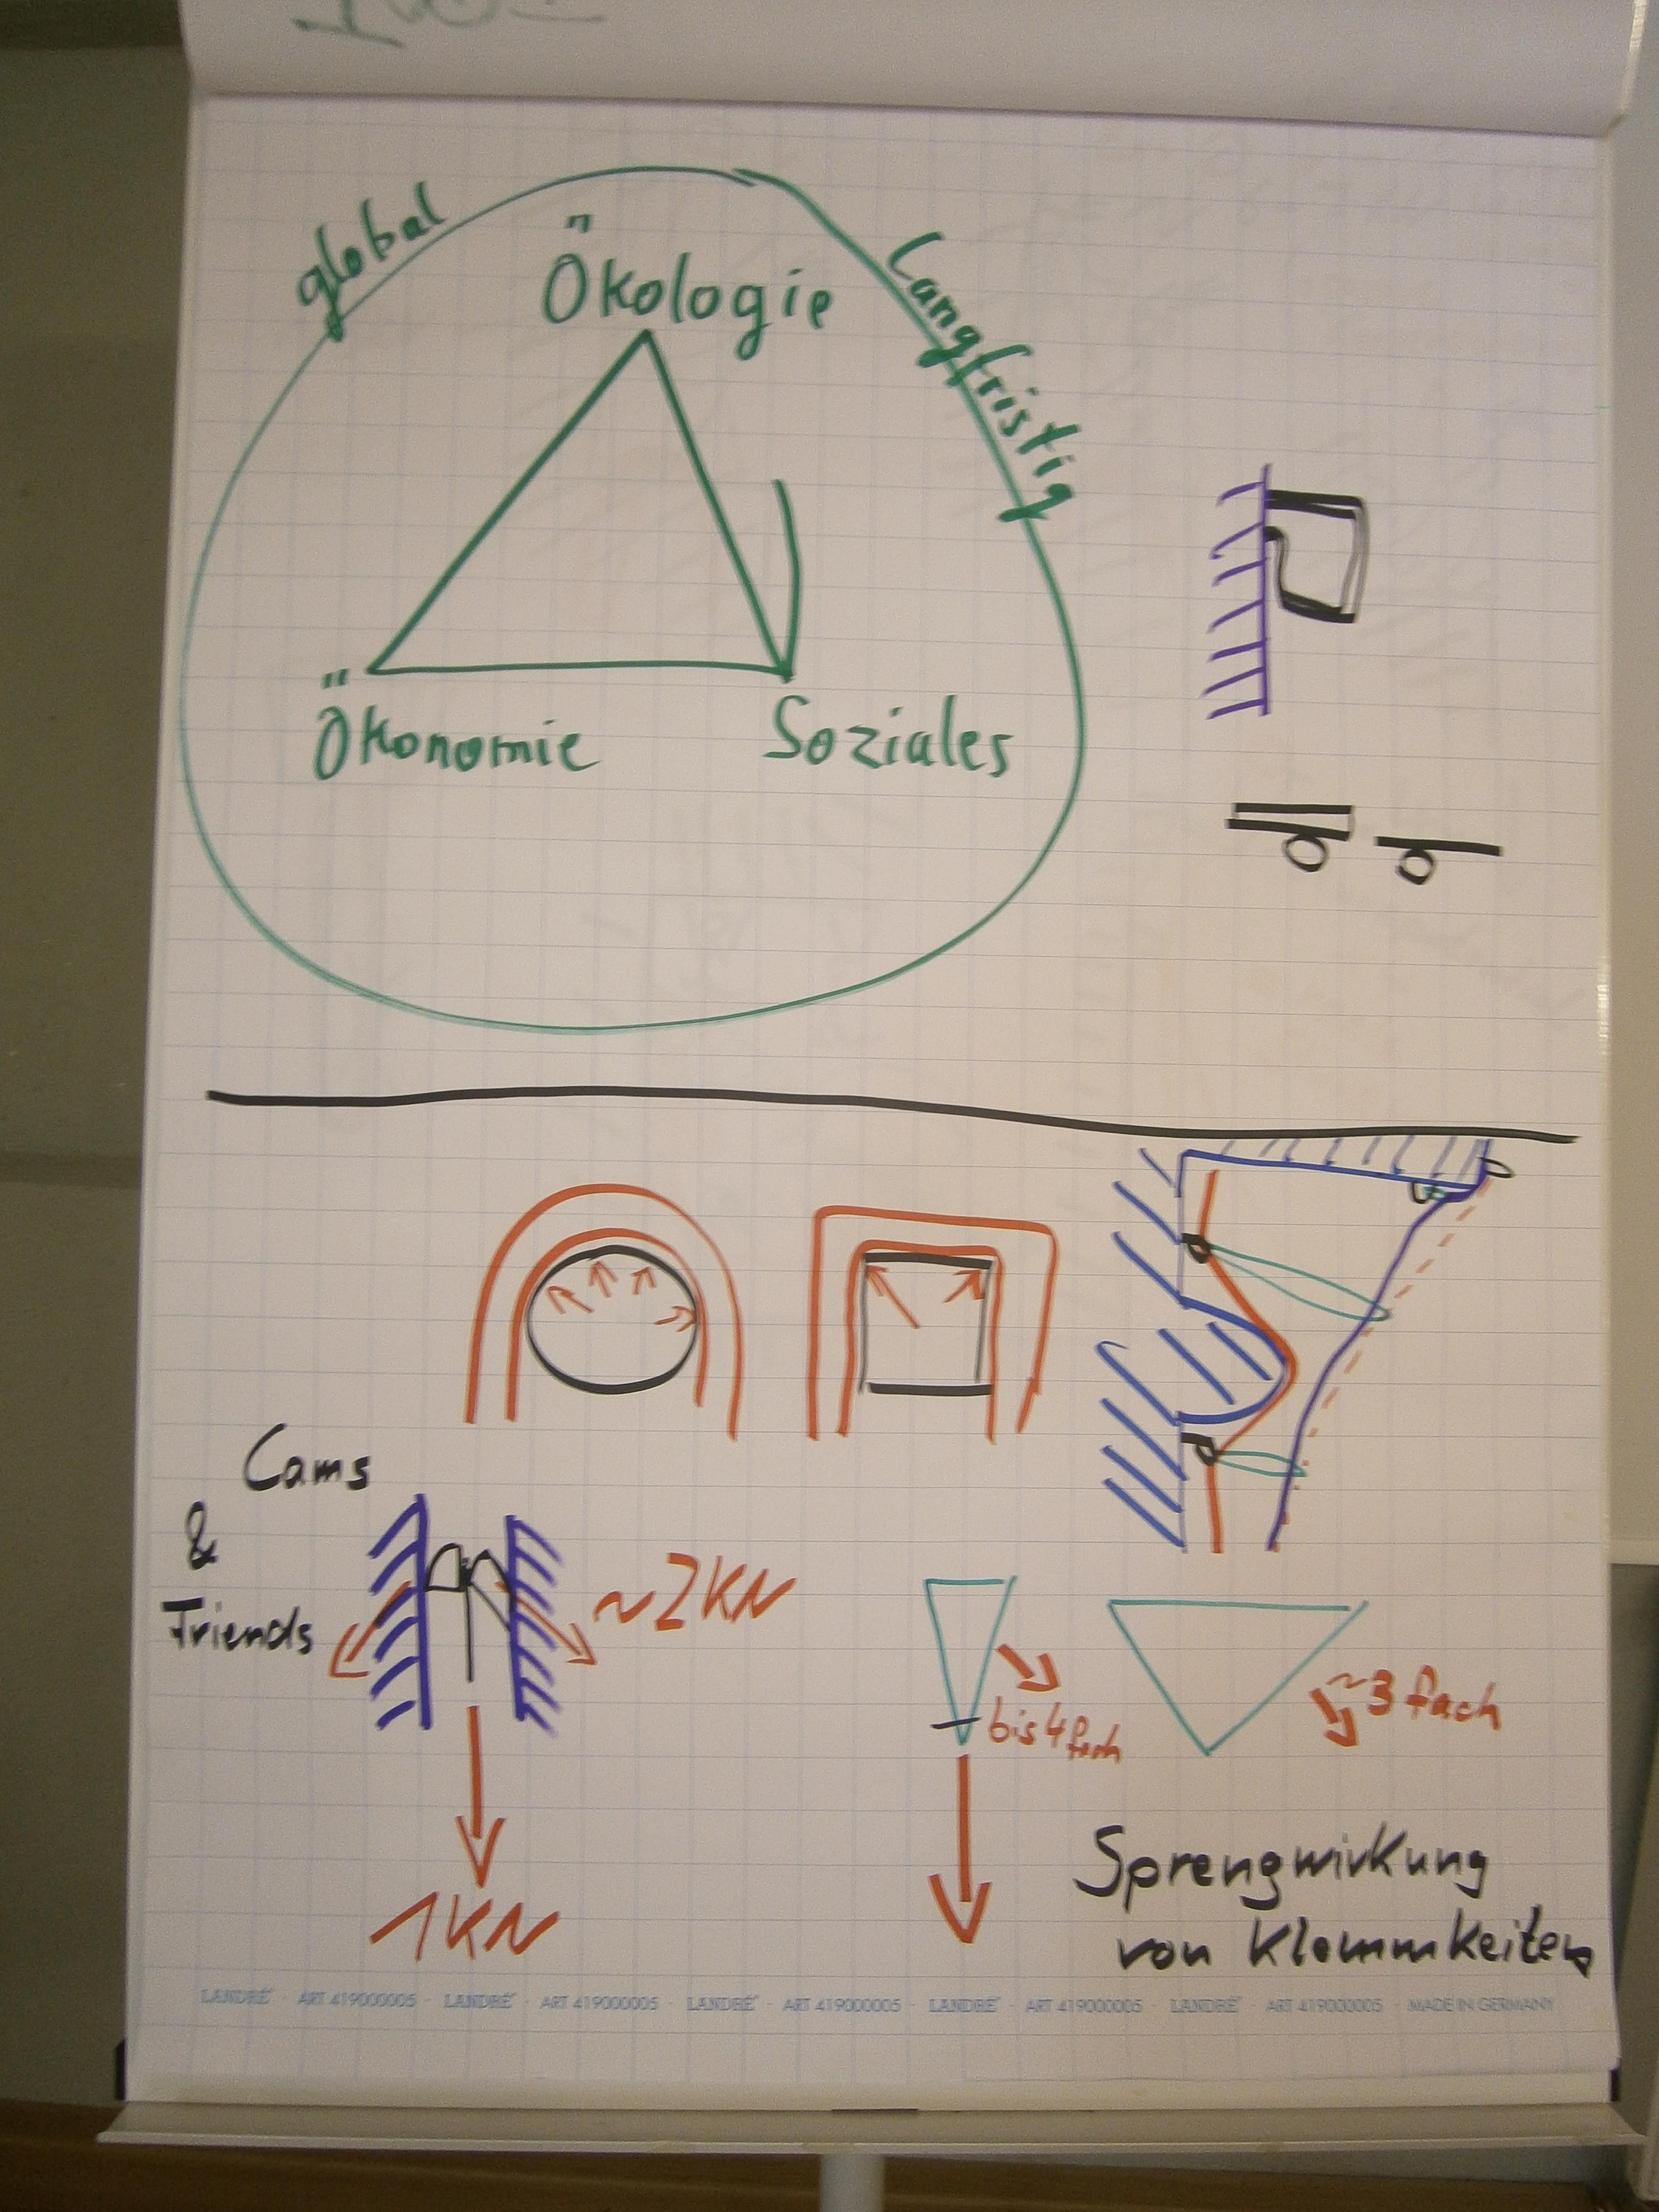 global
Langfristig
Ökologie
Ökonomie
Soziales
Cams
&
Friends
~2KN
1KN
bis 4fach
~3 fach
Sprengwirkung
von Klemmkeilen
LANDRÉ · ART 419000005 · LANDRÉ · ART 419000005 · LANDRÉ · ART 419000005 · LANDRÉ · ART 419000005 · LANDRÉ · ART 419000005 · MADE IN GERMANY